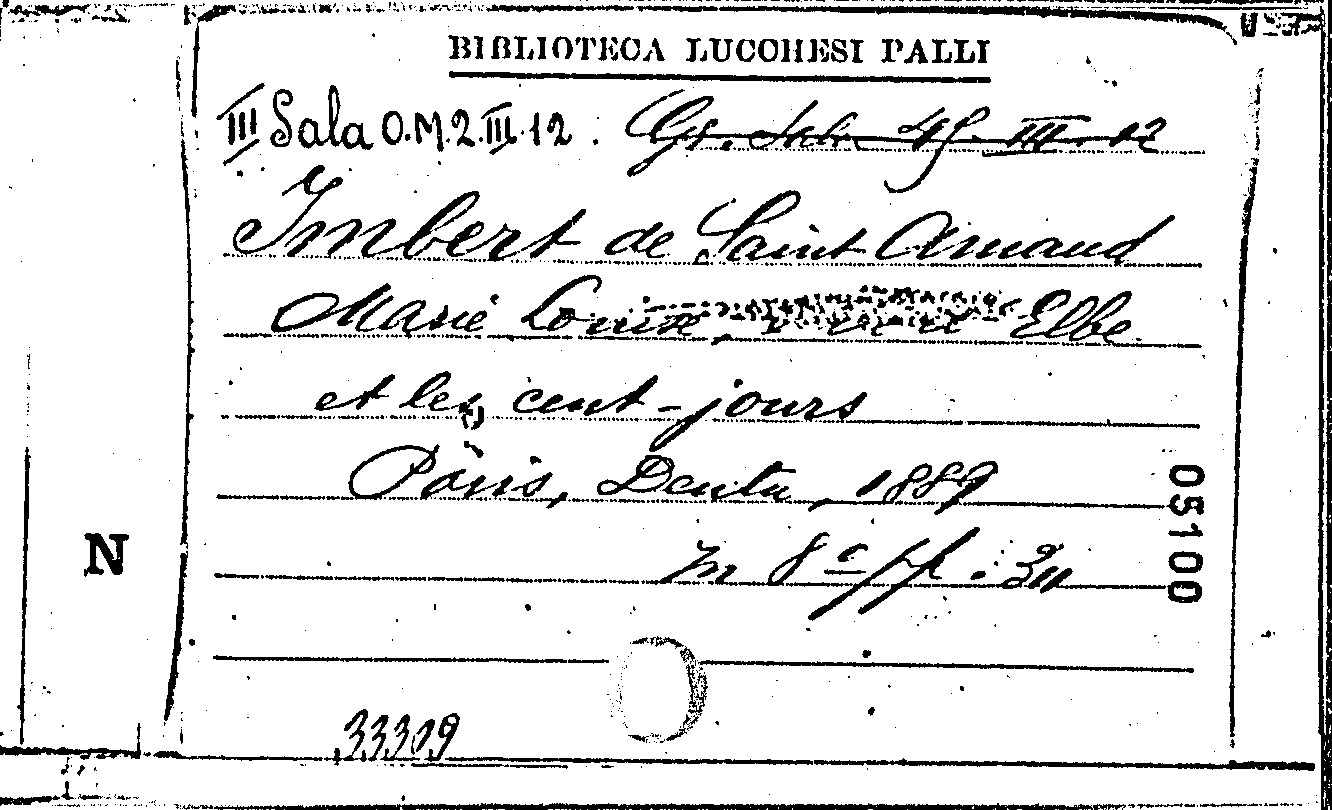 BIBLIOTECA LUCCHESI PALLI
III Sala O.M.2.III.12. Gr. Sala 49. III. 12
Imbert de Saint Amand
Marie Louise, Elbe
et les cent-jours
Paris, Dentu, 1889
In 8º pp.
05100
N
33309